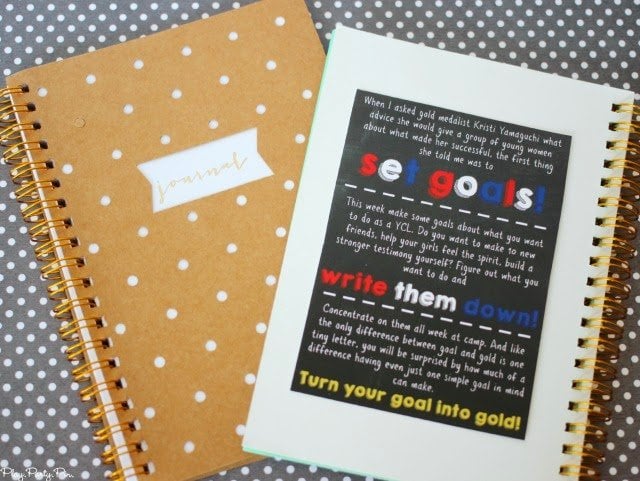 journal
When I asked gold medalist Kristi Yamaguchi what
advice she would give a group of young women
about what made her successful, the first thing
she told me was to
set goals!
This week make some goals about what you want
to do as a YCL. Do you want to make to new
friends, help your girls feel the spirit, build a
stronger testimony yourself? Figure out what you
want to do and
write them down!
Concentrate on them all week at camp. And like
the only difference between goal and gold is one
tiny letter, you will be surprised by how much of a
difference having even just one simple goal in mind
can make.
Turn your goal into gold!
Play.Party.Pin.